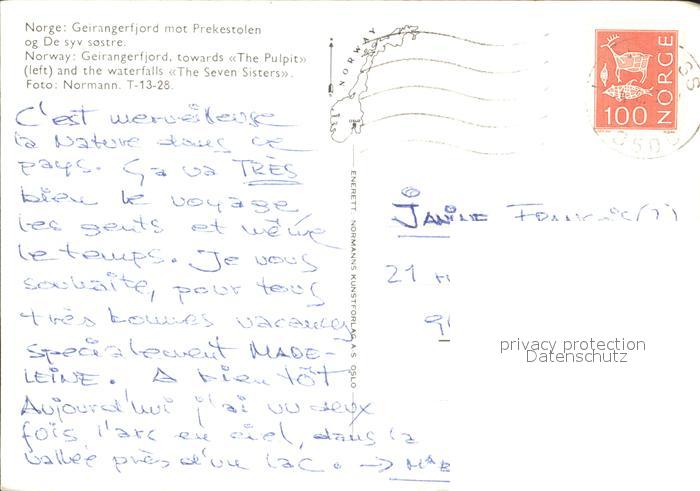 Norge: Geirangerfjord mot Prekestolen
og De syv søstre.
Norway: Geirangerfjord, towards «The Pulpit»
(left) and the waterfalls «The Seven Sisters».
Foto: Normann. T-13-28.
C'est merveilleuse
la Nature dans ce
pays. Ça va TRÈS
bien le voyage
les gents et même
le temps. Je vous
souhaite, pour tous
très bonnes vacances
specialement MADE-
LEINE. A bien tôt
Aujourd'hui j'ai vu deux
fois l'arc en ciel, dans la
vallée près d'un lac. →
ENERETT NORMANNS KUNSTFORLAG A-S OSLO
NORWAY
NORGE
100
OSLO
JANINE
21
privacy protection
Datenschutz